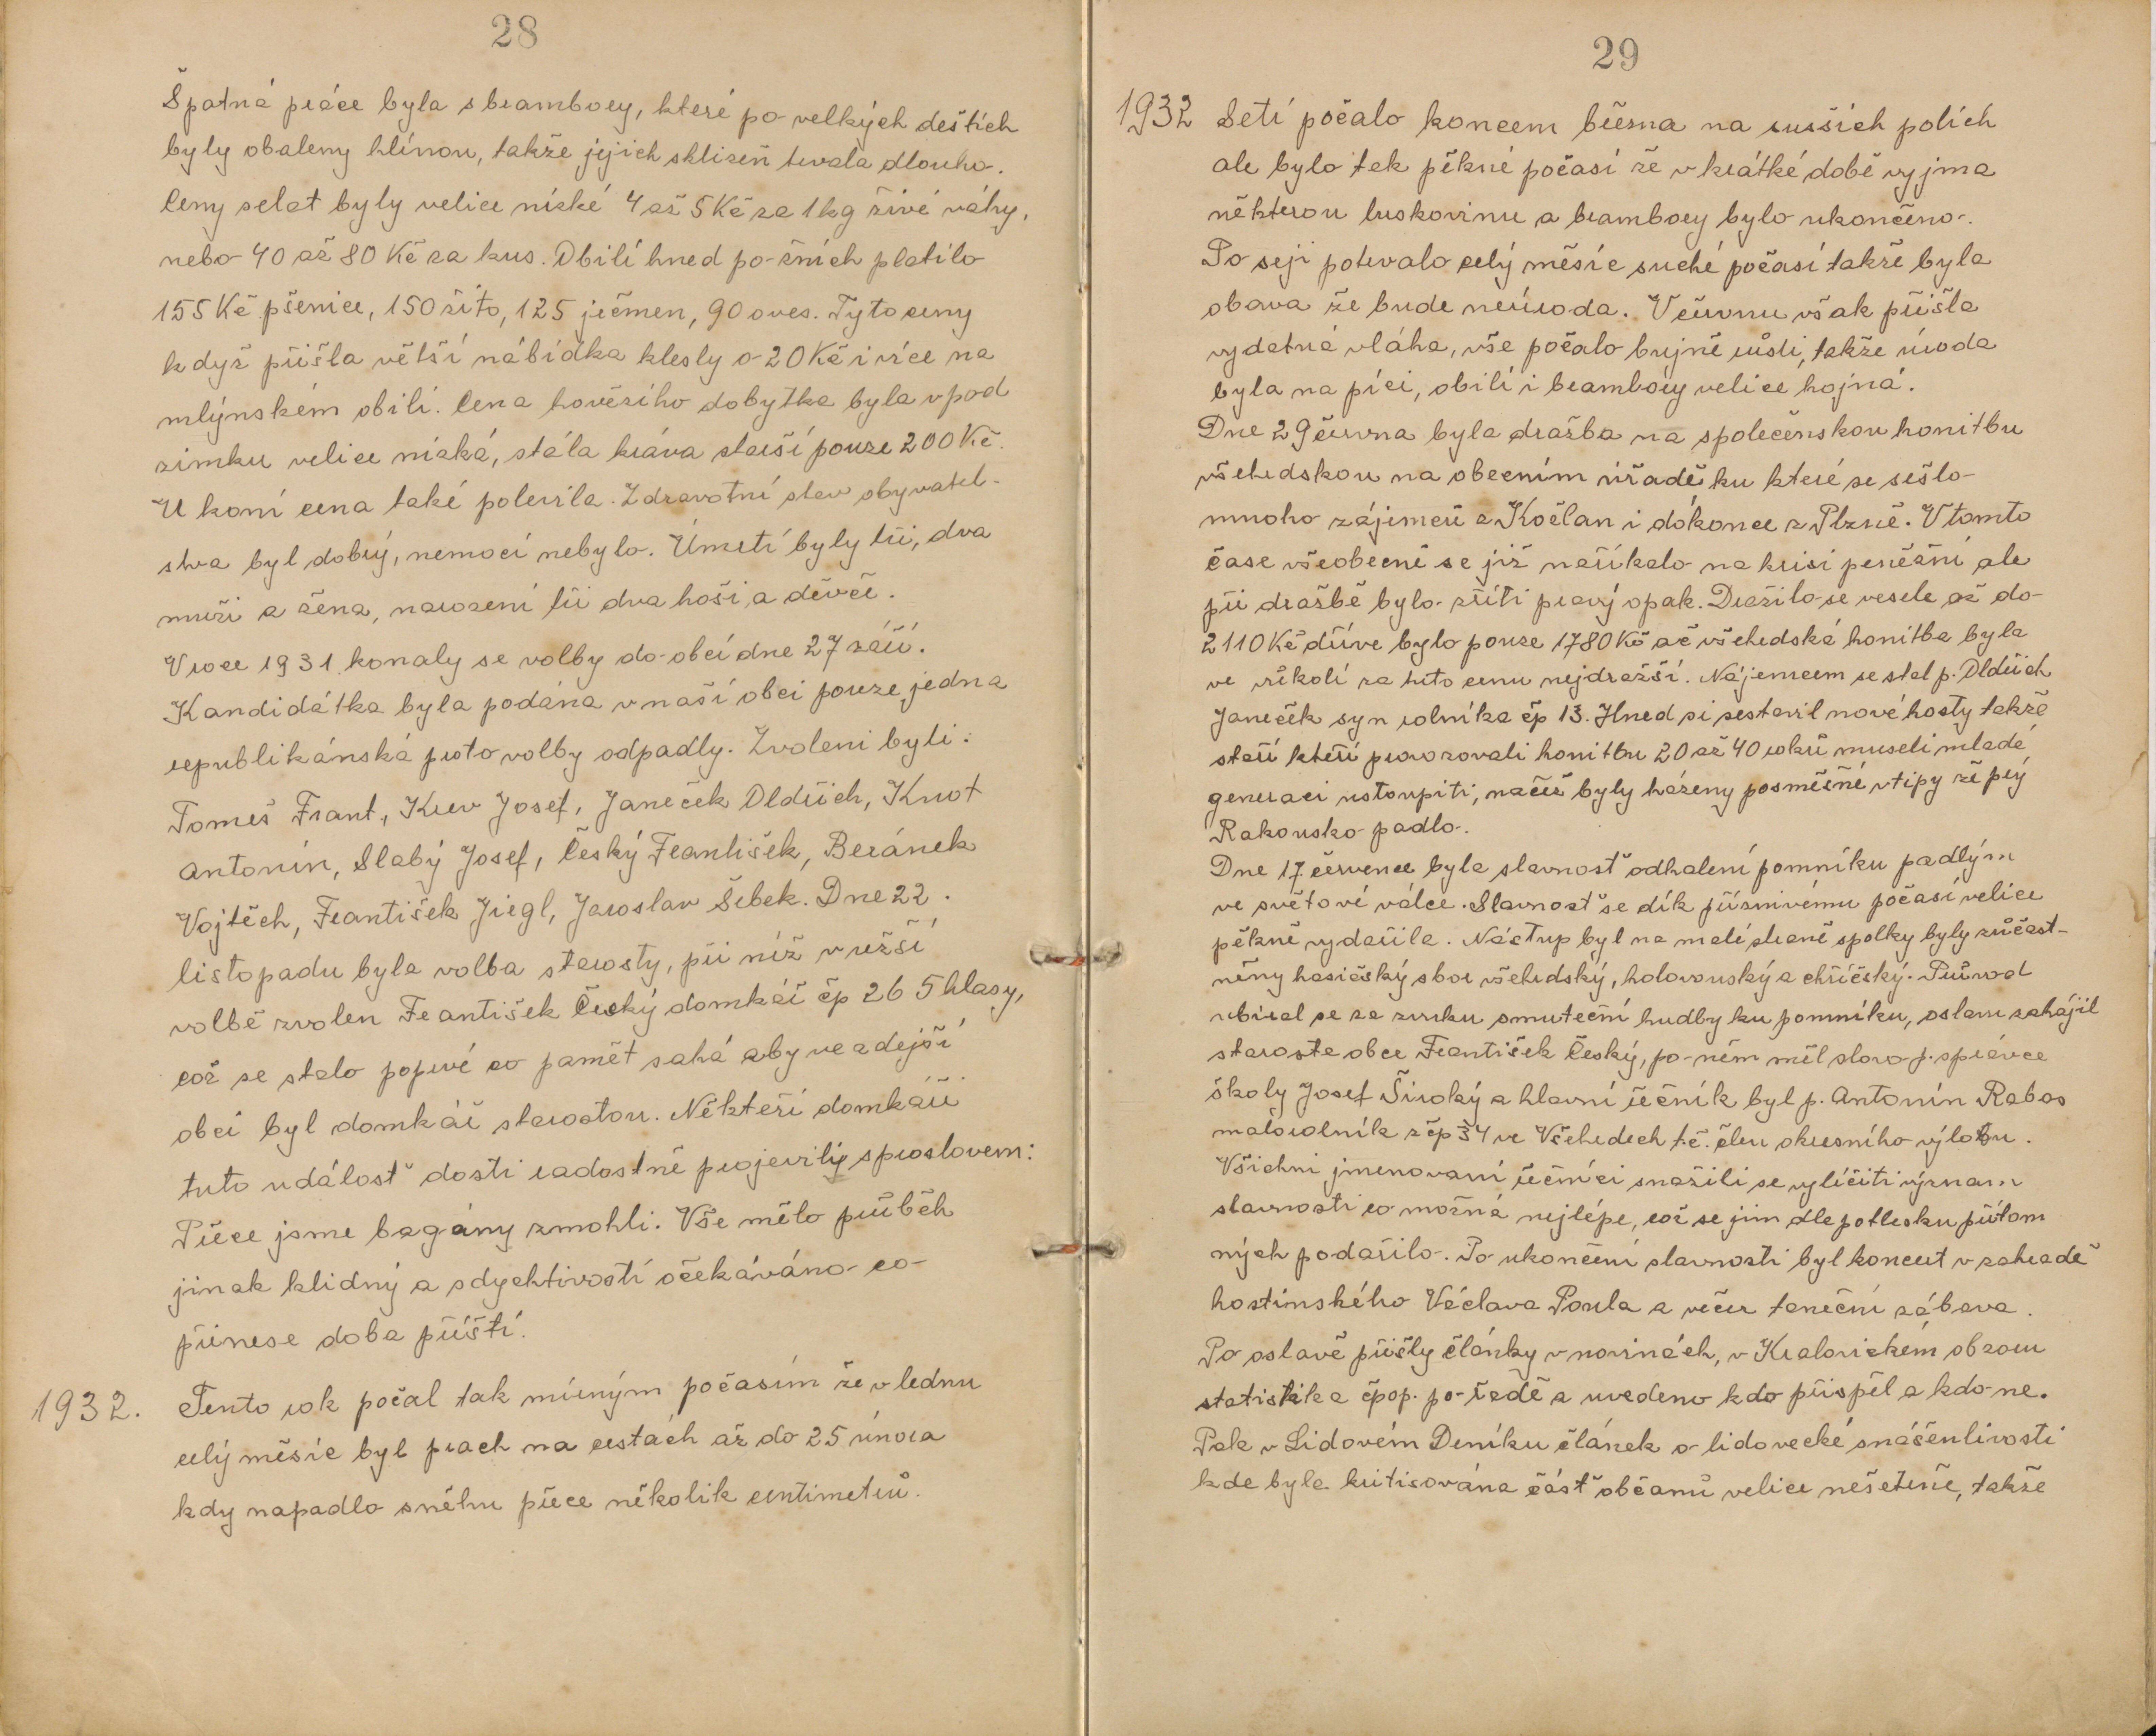 28
Špatná práce byla s brambory, které po velkých deštích
byly obaleny hlínou, takže jejich sklizeň trvala dlouho.
Ceny selat byly velice nízké 4 až 5 Kč za 1 kg živé váhy,
nebo 40 až 80 Kč za kus. Obilí hned po žních platilo
155 Kč pšenice, 150 žito, 125 ječmen, 90 oves. Tyto ceny
když přišla větší nábídka klesly o 20 Kč i více na
mlýnském obilí. Cena hovězího dobytka byla v pod
zimku velice nízká, stála kráva starší pouze 200 Kč.
U koní cena také polevila. Zdravotní stav obyvatel-
stva byl dobrý, nemocí nebylo. Úmrtí byly tři, dva
muži a žena, narození tři dva hoši a děvče.
V roce 1931 konaly se volby do obcí dne 27 září.
Kandidátka byla podána v naší obci pouze jedna
republikánská proto volby odpadly. Zvoleni byli:
Tomeš Frant., Krev Josef, Janeček Oldřich, Knot
Antonín, Slabý Josef, Český František, Beránek
Vojtěch, František Jiegl, Jaroslav Šebek. Dne 22.
listopadu byla volba starosty, při níž v užší
volbě zvolen František Český domkář čp 26 5 hlasy,
což se stalo poprvé co pamět sahá aby ve zdejší
obci byl domkář starostou. Někteří domkáři
tuto událosť dosti radostně projevily s proslovem:
Přece jsme bagány zmohli. Vše mělo průběh
jinak klidný a sdychtivostí očekáváno co
přinese doba příští.
1932. Tento rok počal tak mírným počasím že v lednu
celý měsíc byl prach na cestách až do 25 února
kdy napadlo sněhu přece několik centimetrů.
29
1932 Setí počalo koncem března na sušších polích
ale bylo tak pěkné počasí že v krátké době vyjma
některou luskovinu a brambory bylo ukončeno.
Po seji potrvalo celý měsíc suché počasí takže byla
obava že bude neúroda. V červnu však přišla
vydatná vláha, vše počalo bujně růsti, takže úroda
byla na píci, obilí i brambory velice hojná.
Dne 29 června byla dražba na společenskou honitbu
všehrdskou na obecním úřadě ku které se sešlo
mnoho zájemců z Kočlan i dokonce z Plzně. V tomto
čase všeobecně se již naříkalo na krisi peněžní ale
při dražbě bylo zříti pravý opak. Dražilo se vesele až do
2110 Kč dříve bylo pouze 1780 Kč ač všehrdská honitba byla
ve vůkolí za tuto cenu nejdražší. Nájemcem se stal p. Oldřich
Janeček syn rolníka čp 13. Hned si sestavil nové hosty takže
staří kteří provozovali honitbu 20 až 40 roků museli mladé
generaci ustoupiti, načež byly házeny posměšné vtipy že prý
Rakousko padlo.
Dne 17. července byla slavnosť odhalení pomníku padlým
ve světové válce. Slavnosť se dík příznivému počasí velice
pěkně vydařila. Nástup byl na malé straně spolky byly zůčast-
něny hasičský sbor všehrdský, holovouský a chříčský. Průvod
ubíral se za zvuku smuteční hudby ku pomníku, oslavu zahájil
starosta obce František Český, po něm měl slovo p. správce
školy Josef Široký a hlavní řečník byl p. Antonín Rabas
malorolník z čp 34 ve Všehrdech t.č. člen okresního výboru.
Všichni jmenovaní řečníci snažili se vylíčiti význam
slavnosti co možná nejlépe, což se jim dle potlesku přítom
ných podařilo. Po ukončení slavnosti byl koncert v zahradě
hostinského Václava Poula a večer taneční zábava.
Po oslavě přišly články v novinách, v Kralovickém obzoru
statistika čpop. po řadě a uvedeno kdo přispěl a kdo ne.
Pak v Lidovém Deníku článek o lidovecké snášenlivosti
kde byla kritisována část občanů velice nešetrně, takže